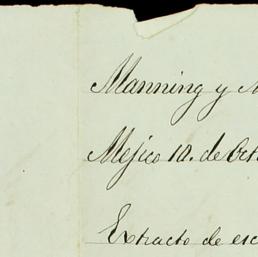 Manning y
Mejico 10. de Oct
Extracto de esc